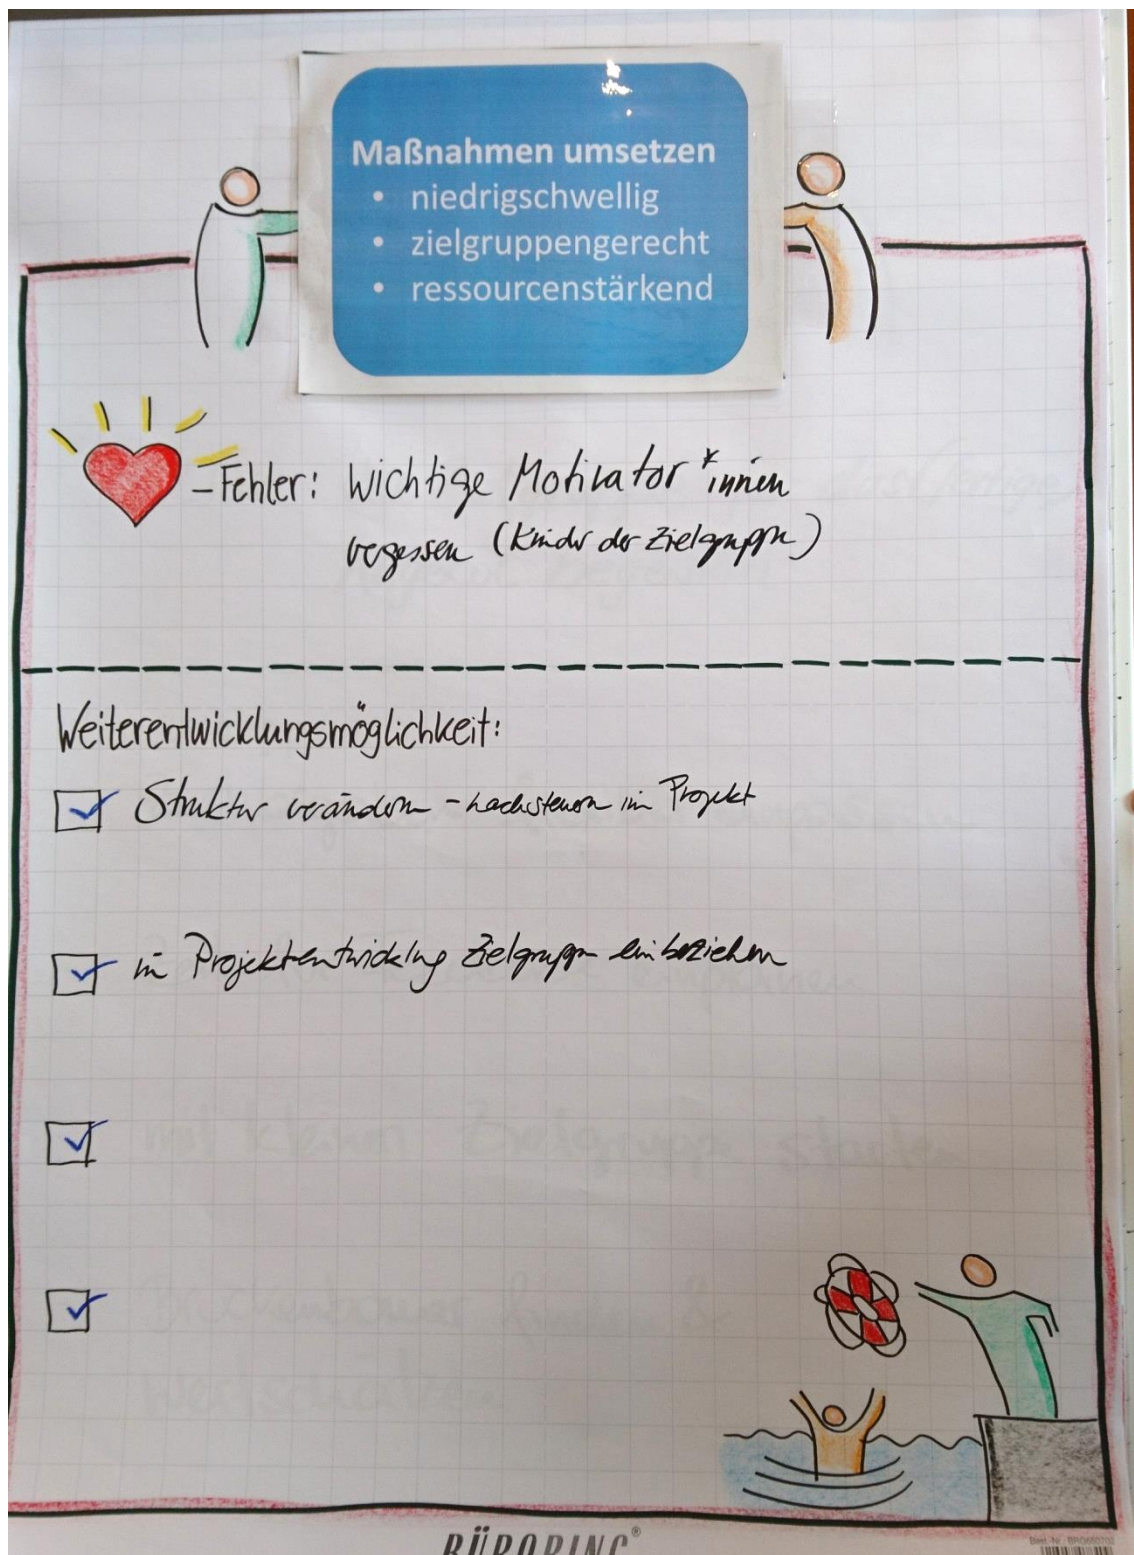 Maßnahmen umsetzen
• niedrigschwellig
• zielgruppengerecht
• ressourcenstärkend
-Fehler: Wichtige Motivator*innen
vergessen (Kinder der Zielgruppe)
Weiterentwicklungsmöglichkeit:
Struktur verändern - nachsteuern im Projekt
in Projektentwicklung Zielgruppe einbeziehen
BÜRORING®